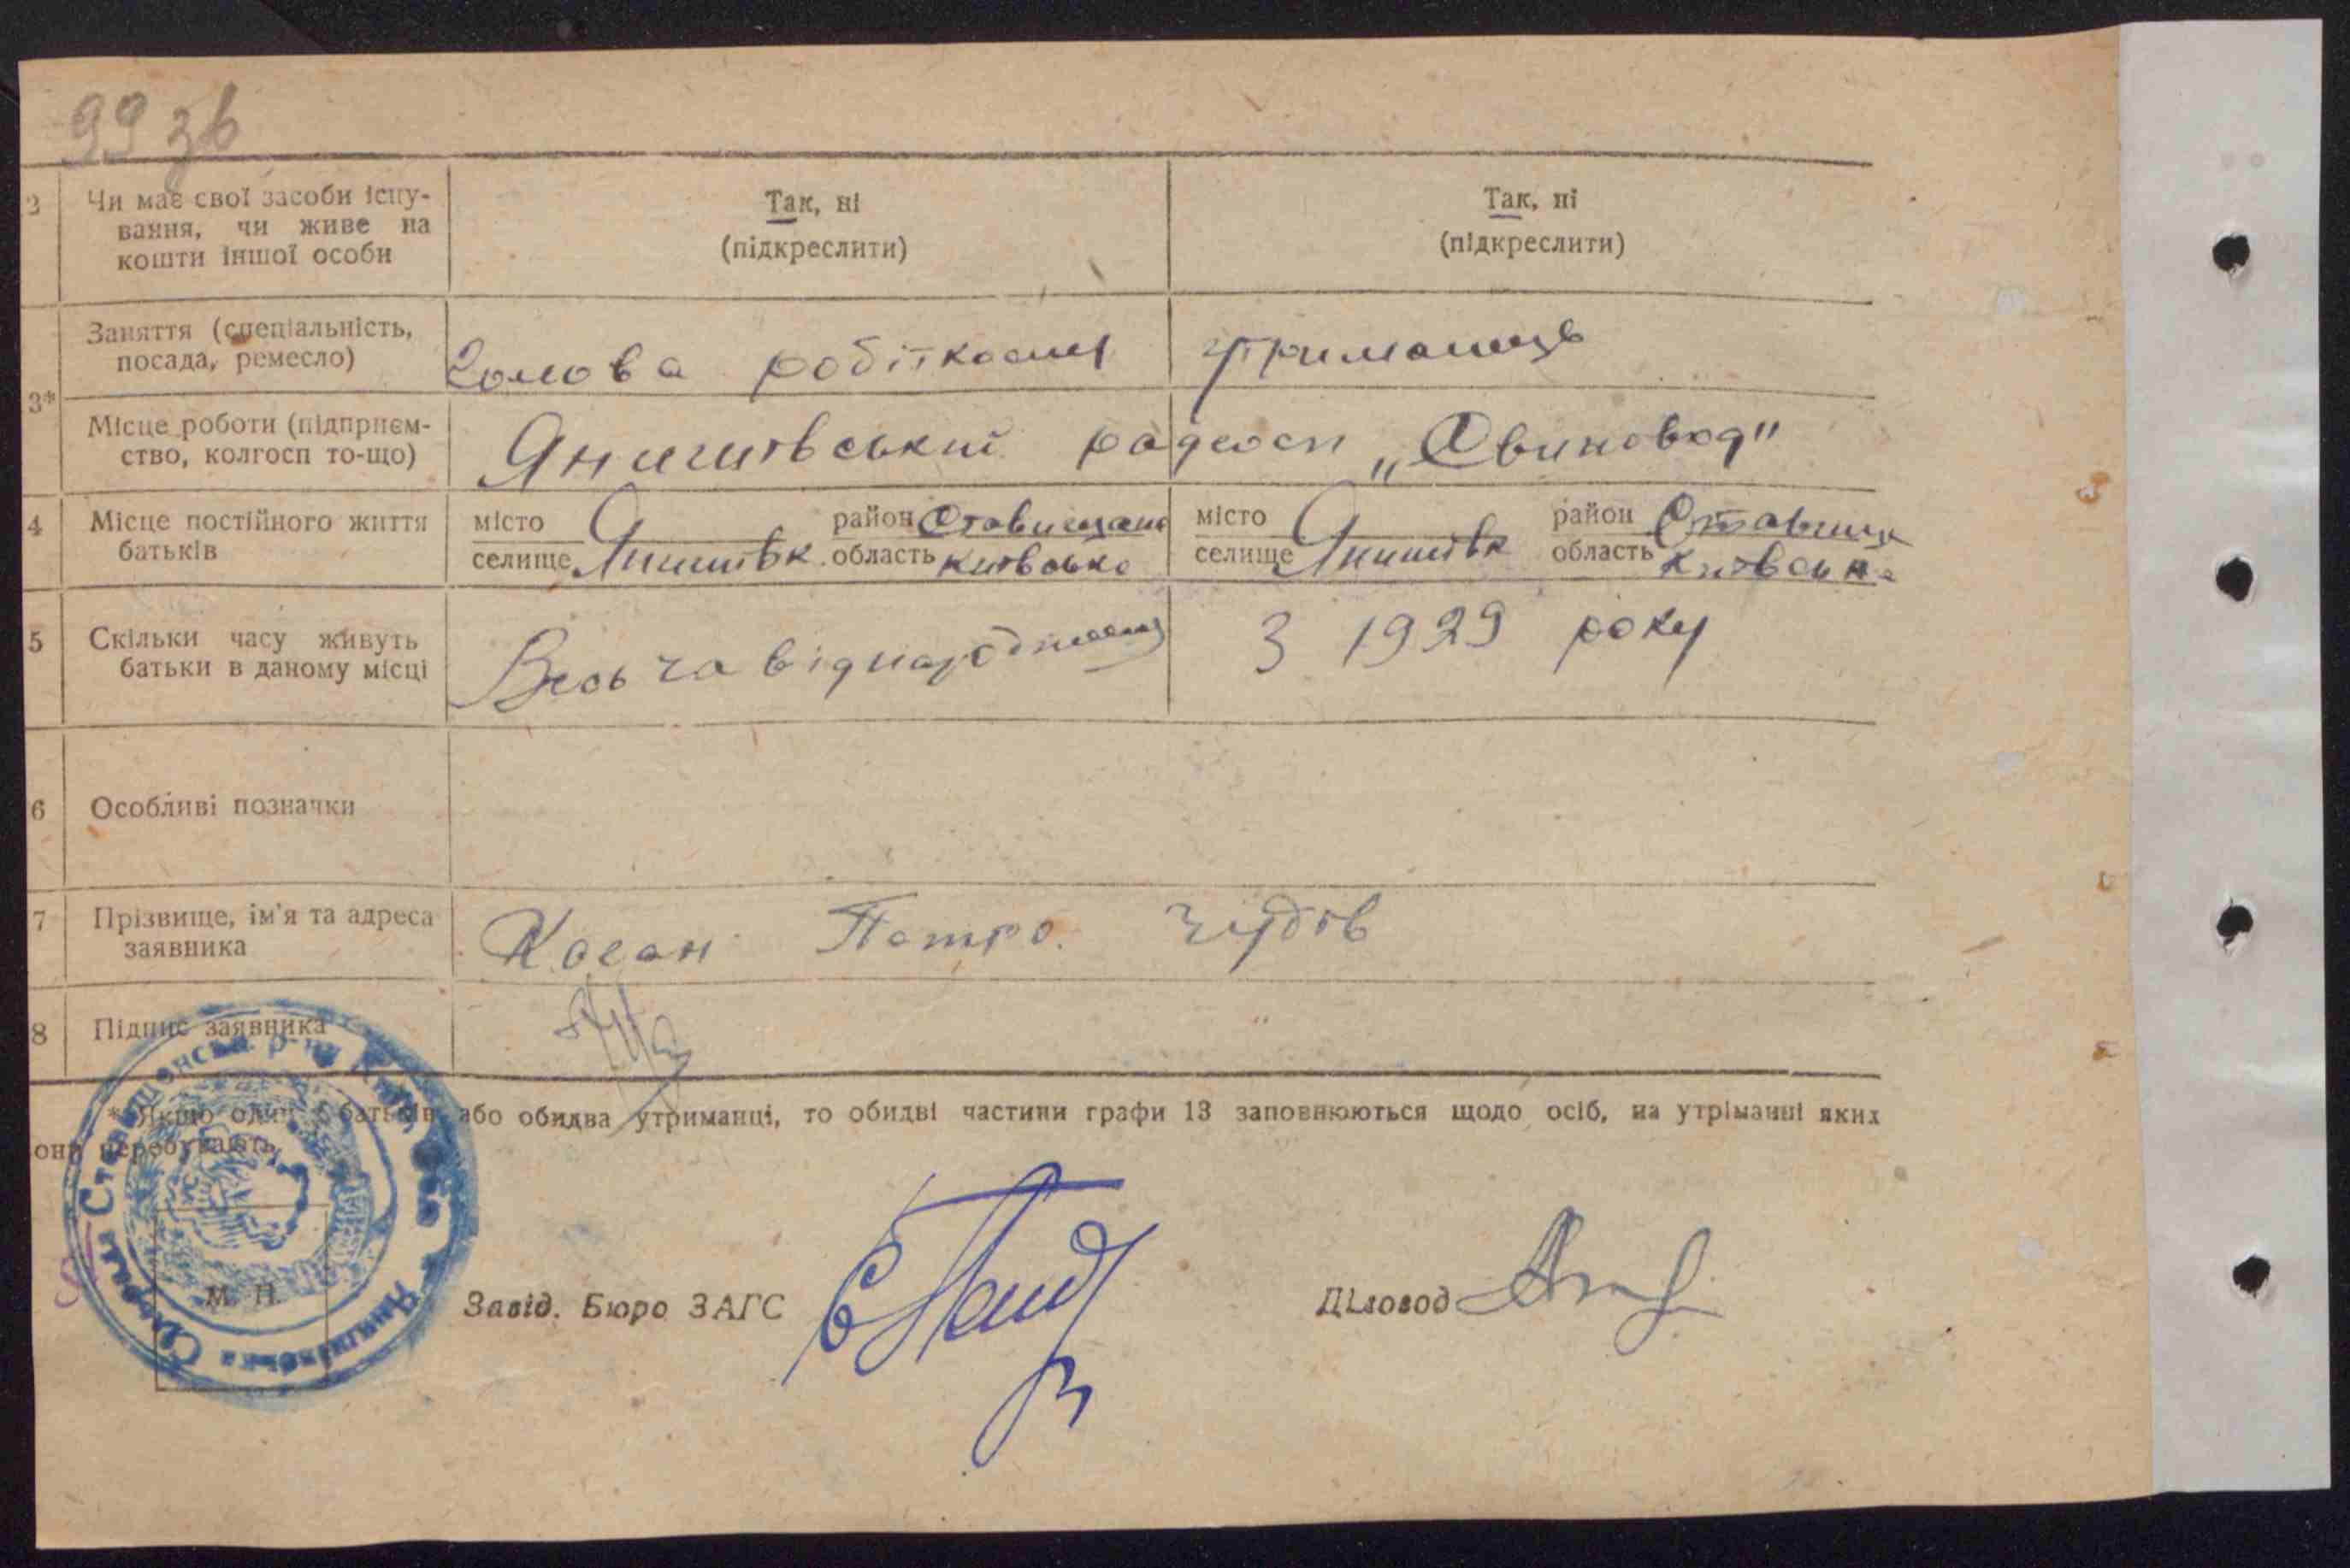 99 зв
2 Чи має свої засоби існу-
вання, чи живе на
кошти іншої особи
Так, ні
(підкреслити)
Так, ні
(підкреслити)
3*
Заняття (спеціальність,
посада, ремесло)
Голова робіткому
утриманець
Місце роботи (підприєм-
ство, колгосп то-що)
Янишівський радгосп „Свиновод"
4 Місце постійного життя
батьків
місто
селище Янишівк
район
область київська
місто
селище Янишівк
район Ставищ
область київська
5 Скільки часу живуть
батьки в даному місці
Весь ча від народження
З 1929 року
6 Особливі позначки
7 Прізвище, ім'я та адреса
заявника
Коган Петро.
8 Підпис заявника
* Якщо один з батьків або обидва утриманці, то обидві частини графи 13 заповнюються щодо осіб, на утріманні яких
они перебувають.
М. П.
Завід. Бюро ЗАГС
Діловод